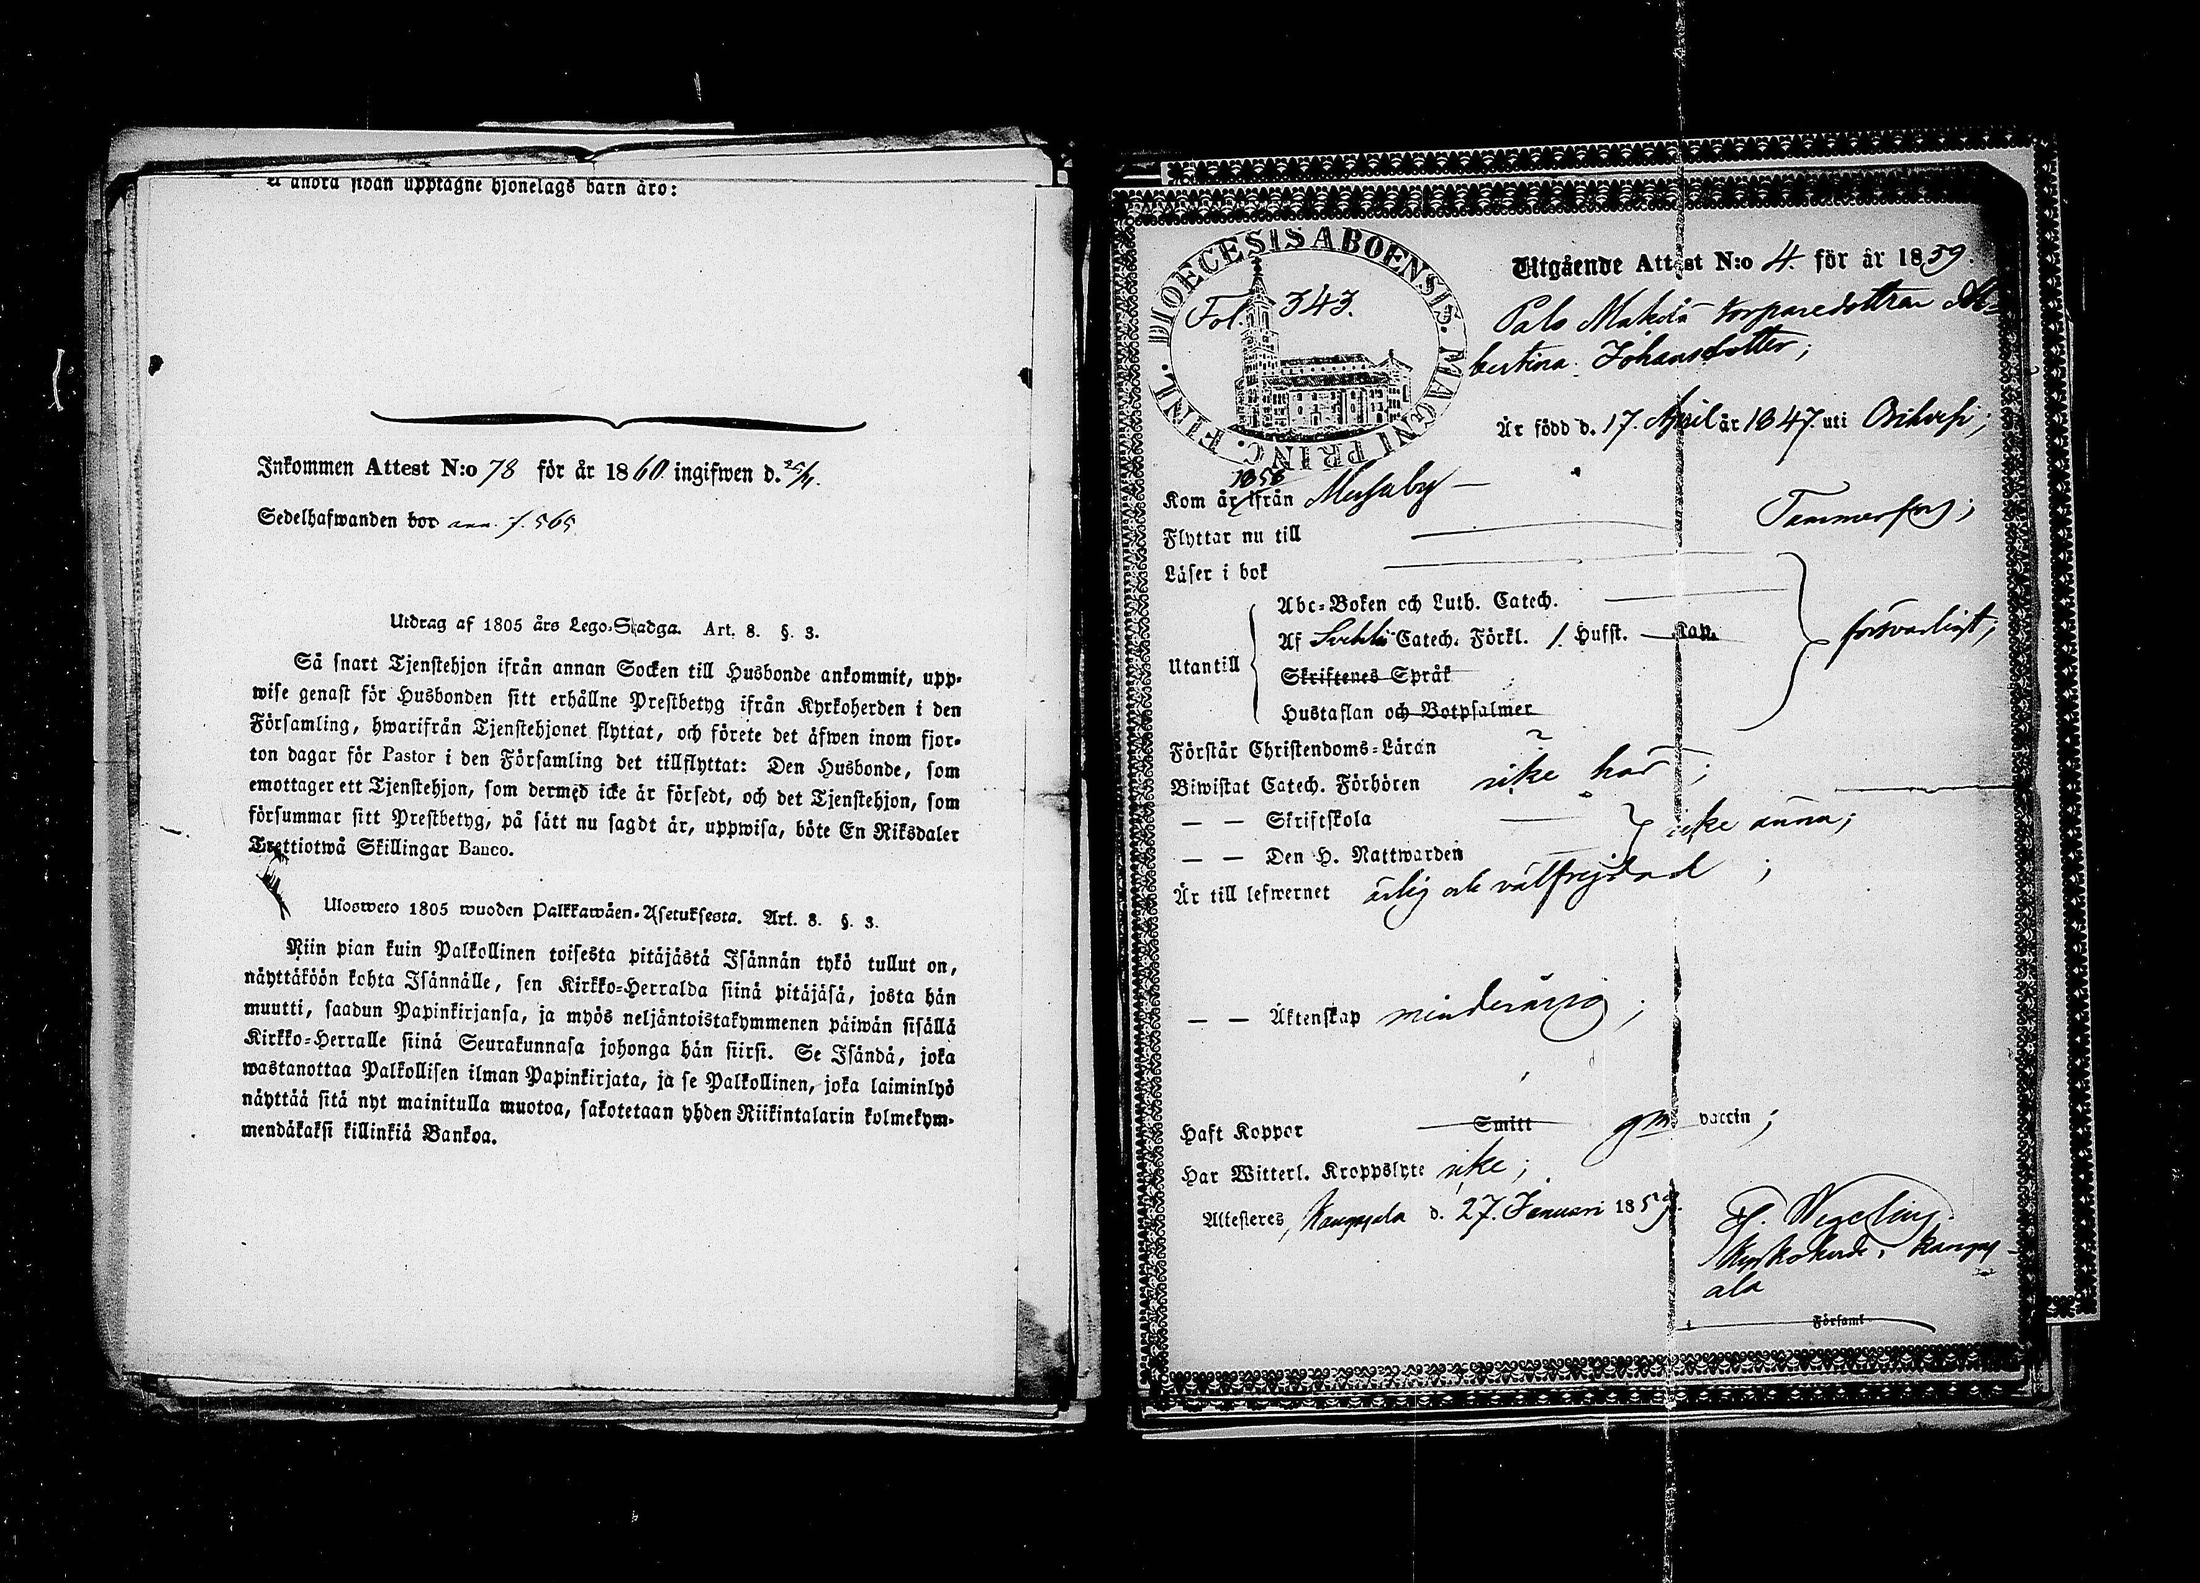 å andra sidan upptagne hjonelags barn äro:
Inkommen Attest N:o 78 för år 1860 ingifwen d. 25/4.
Sedelhafwanden bor ann. f. 565
Utdrag af 1805 års Lego-Stadga. Art. 8. §. 3.
Så snart Tjenstehjon ifrån annan Socken till Husbonde ankommit, upp-
wise genast för Husbonden sitt erhållne Prestbetyg ifrån Kyrkoherden i den
Församling, hwarifrån Tjenstehjonet flyttat, och förete det äfwen inom fjor-
ton dagar för Pastor i den Församling det tillflyttat: Den Husbonde, som
emottager ett Tjenstehjon, som dermed icke är försedt, och det Tjenstehjon, som
försummar sitt Prestbetyg, på sätt nu sagdt är, uppwisa, böte En Riksdaler
Trettiotwå Skillingar Banco.
Ulosweto 1805 wuoden Palkkawäen-Asetuksesta. Art. 8. §. 3.
Niin pian kuin Palkollinen toisesta pitäjästä Isännän tykö tullut on,
näyttäköön kohta Isännälle, sen Kirkko-Herralda siinä pitäjäsä, josta hän
muutti, saadun Papinkirjansa, ja myös neljäntoistakymmenen päiwän sisällä
Kirkko-Herralle siinä Seurakunnasa johonga hän siirsi. Se Isändä, joka
wastanottaa Palkollisen ilman Papinkirjata, ja se Palkollinen, joka laiminlyö
näyttää sitä nyt mainitulla muotoa, sakotetaan yhden Riikintalarin kolmekym-
mendäkaksi killinkiä Bankoa.
FINL. DIOECESIS ABOENSIS. MAGNI PRINC.
Fol. 343.
Utgående Attest N:o 4. för år 1859.
Palo Makelä torparedottran Al-
bertina Johansdotter;
Är född d. 17. April år 1847. uti Orihvesi;
1858
Kom år ifrån Messuby
Flyttar nu till Tammerfors;
Läser i bok
Abc-Boken och Luth. Catech.
Utantill Af Svebilii Catech. Förkl. 1. Hufst. Kap. försvarligt;
Skriftenes Språk
Hustaflan och Botpsalmer
Förstår Christendoms-Läran
Biwistat Catech. Förhören icke här;
— — Skriftskola icke ännu;
— — Den H. Nattwarden
Är till lefwernet ärlig och välfrejdad;
— — Äktenskap minderårig;
Haft Koppor Smitt gm vaccin;
Har Witterl. Kroppslyte icke;
Attesteres, Kangasala d. 27. Januari 1859.
Wegelius.
Kyrkoherde i Kangas-
ala
Förfaml